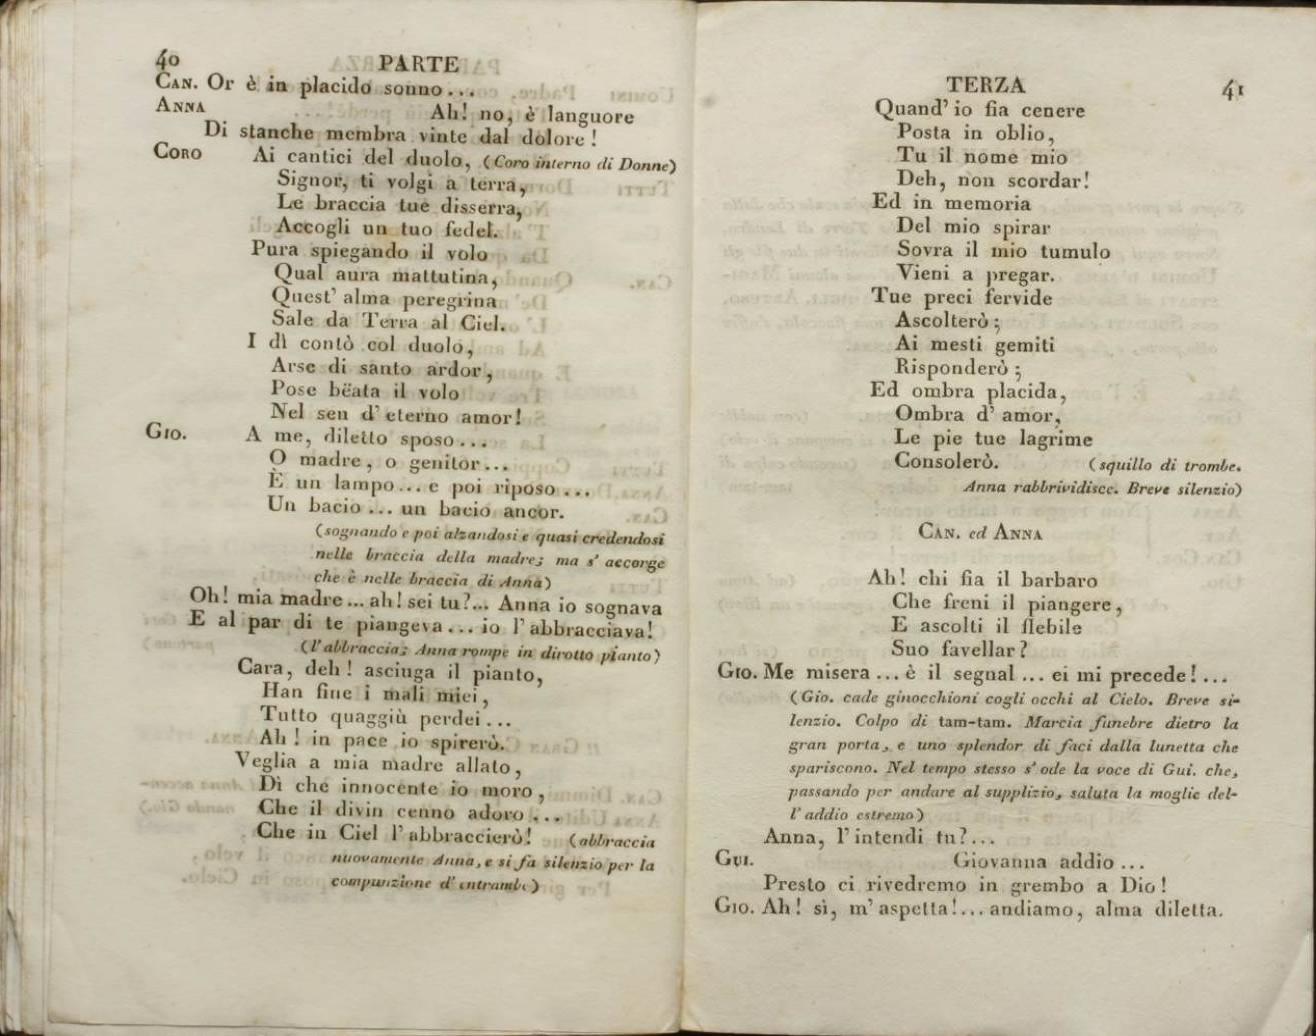 40 PARTE
CAN. Or è in placido sonno...
ANNA Ah! no, è languore
Di stanche membra vinte dal dolore!
CORO Ai cantici del duolo, (Coro interno di Donne)
Signor, ti volgi a terra,
Le braccia tue disserra,
Accogli un tuo fedel.
Pura spiegando il volo
Qual aura mattutina,
Quest' alma peregrina
Sale da Terra al Ciel.
I dì contò col duolo,
Arse di santo ardor,
Pose bëata il volo
Nel sen d' eterno amor!
GIO. A me, diletto sposo...
O madre, o genitor...
È un lampo... e poi riposo...
Un bacio... un bacio ancor.
(sognando e poi alzandosi e quasi credendosi
nelle braccia della madre; ma s' accorge
che è nelle braccia di Anna)
Oh! mia madre... ah! sei tu?... Anna io sognava
E al par di te piangeva... io l' abbracciava!
(l' abbraccia; Anna rompe in dirotto pianto)
Cara, deh! asciuga il pianto,
Han fine i mali miei,
Tutto quaggiù perdei...
Ah! in pace io spirerò.
Veglia a mia madre allato,
Dì che innocente io moro,
Che il divin cenno adoro...
Che in Ciel l' abbraccierò! (abbraccia
nuovamente Anna, e si fa silenzio per la
compunzione d' entrambe)
TERZA 41
Quand' io fia cenere
Posta in oblio,
Tu il nome mio
Deh, non scordar!
Ed in memoria
Del mio spirar
Sovra il mio tumulo
Vieni a pregar.
Tue preci fervide
Ascolterò;
Ai mesti gemiti
Risponderò;
Ed ombra placida,
Ombra d' amor,
Le pie tue lagrime
Consolerò. (squillo di trombe.
Anna rabbrividisce. Breve silenzio)
CAN. ed ANNA
Ah! chi fia il barbaro
Che freni il piangere,
E ascolti il flebile
Suo favellar?
GIO. Me misera... è il segnal... ei mi precede!...
(Gio. cade ginocchioni cogli occhi al Cielo. Breve si-
lenzio. Colpo di tam-tam. Marcia funebre dietro la
gran porta, e uno splendor di faci dalla lunetta che
spariscono. Nel tempo stesso s' ode la voce di Gui. che,
passando per andare al supplizio, saluta la moglie del-
l' addio estremo)
Anna, l' intendi tu?...
GUI. Giovanna addio...
Presto ci rivedremo in grembo a Dio!
GIO. Ah! sì, m' aspetta!... andiamo, alma diletta.